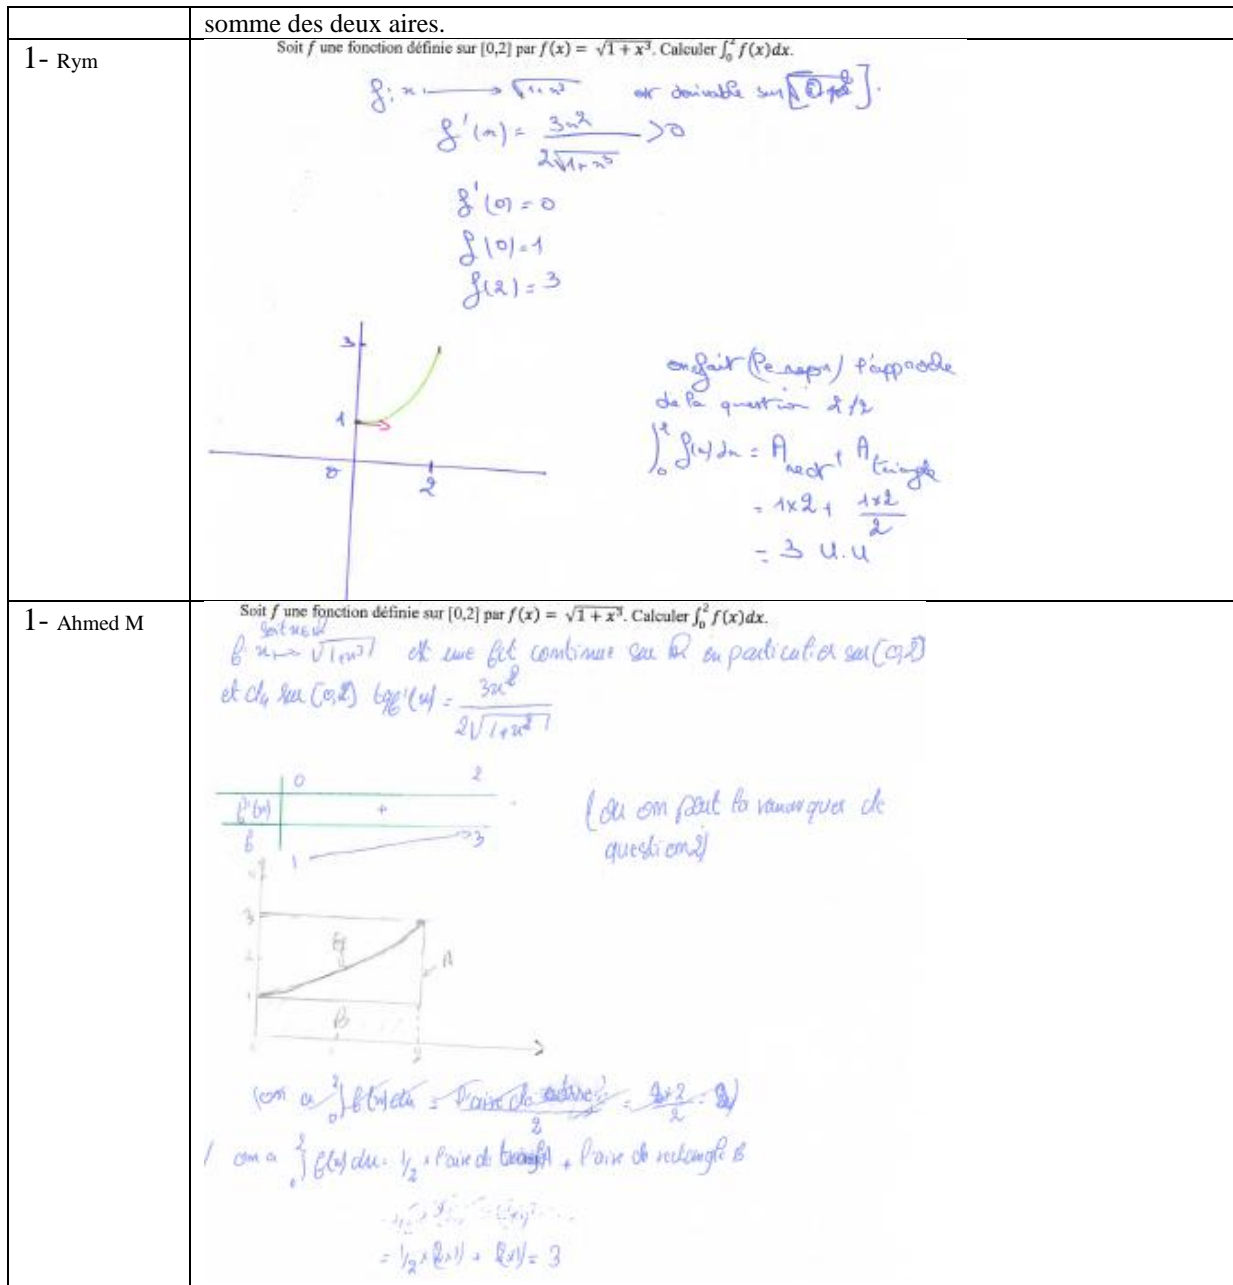 somme des deux aires.
1- Rym
Soit f une fonction définie sur [0,2] par f(x) = √(1 + x³). Calculer ∫₀² f(x)dx.
f: x ⟶ √(1+x³) est dérivable sur
f'(x) = 3x² / 2√(1+x³) >0
f'(0) = 0
f(0)=1
f(2) = 3
3
1
0
2
on fait l'approche
de la question 2/2
∫₀² f(x)dx = A rect + A triangle
= 1x2 + 1x2/2
= 3 u.u
1- Ahmed M
Soit f une fonction définie sur [0,2] par f(x) = √(1 + x³). Calculer ∫₀² f(x)dx.
soit
f x ↦ √(1+x³) est une fct continue sur en particulier sur [0,2]
et sur [0,2] f'(x) = 3x² / 2√(1+x²)
0 2
f'(x) +
f 1 3
(ou on peut la remarquer de
question 2)
3
2
1
A
B
2
(on a ∫₀² f(x)dx = l'aire de / 2 = 2x2/2 = 2)
on a ∫₀² f(x) dx = 1/2 × l'aire de A + l'aire de rectangle B
= 1/2 × (2x1) + (2x1) = 3